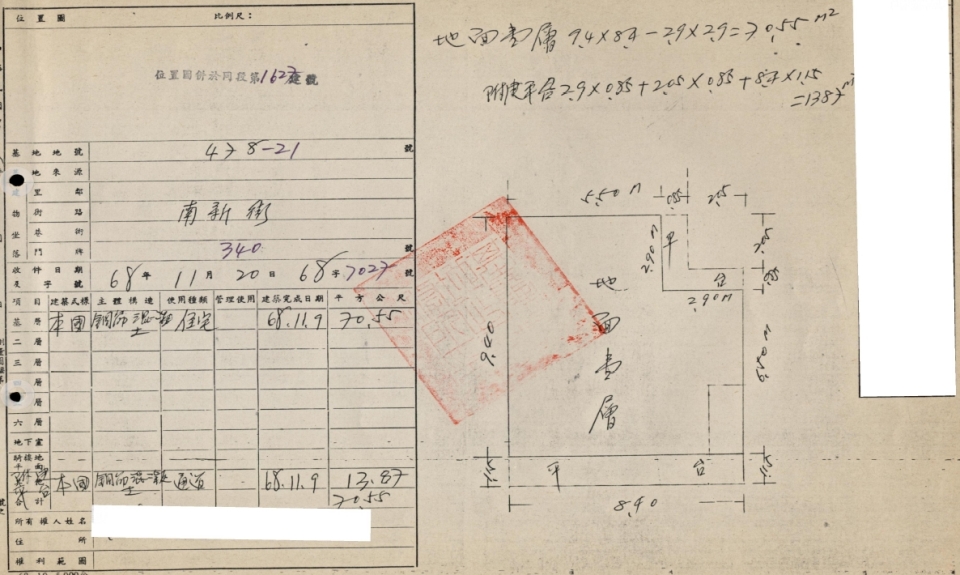 位置圖 比例尺：
位置圖併於同段第1627建號
基地地號 478-21 號
地來源
里鄰
街路 南新街
巷衖
門牌 340 號
收件日期 68年11月20日 68字7027號
及字號
項目 建築式樣 主體構造 使用種類 管理使用 建築完成日期 平方公尺
基層 本國 鋼筋混凝土 住宅 68.11.9 70.55
二層
三層
層
層
六層
地下室
騎樓地面
本國 鋼筋混凝土 通道 68.11.9 13.87
合計 70.55
所有權人姓名
住所
權利範圍
地面壹層 9.4×8.4-2.9×2.9=70.55 m²
附建平台 2.9×0.85+2.05×0.85+8.4×1.15
=13.87 m²
5.50 M 0.85 2.05
2.90 M 平 2.05
台 0.85
2.90 M
地面壹層
9.40
6.50 M
1.15 平台 1.15
8.40